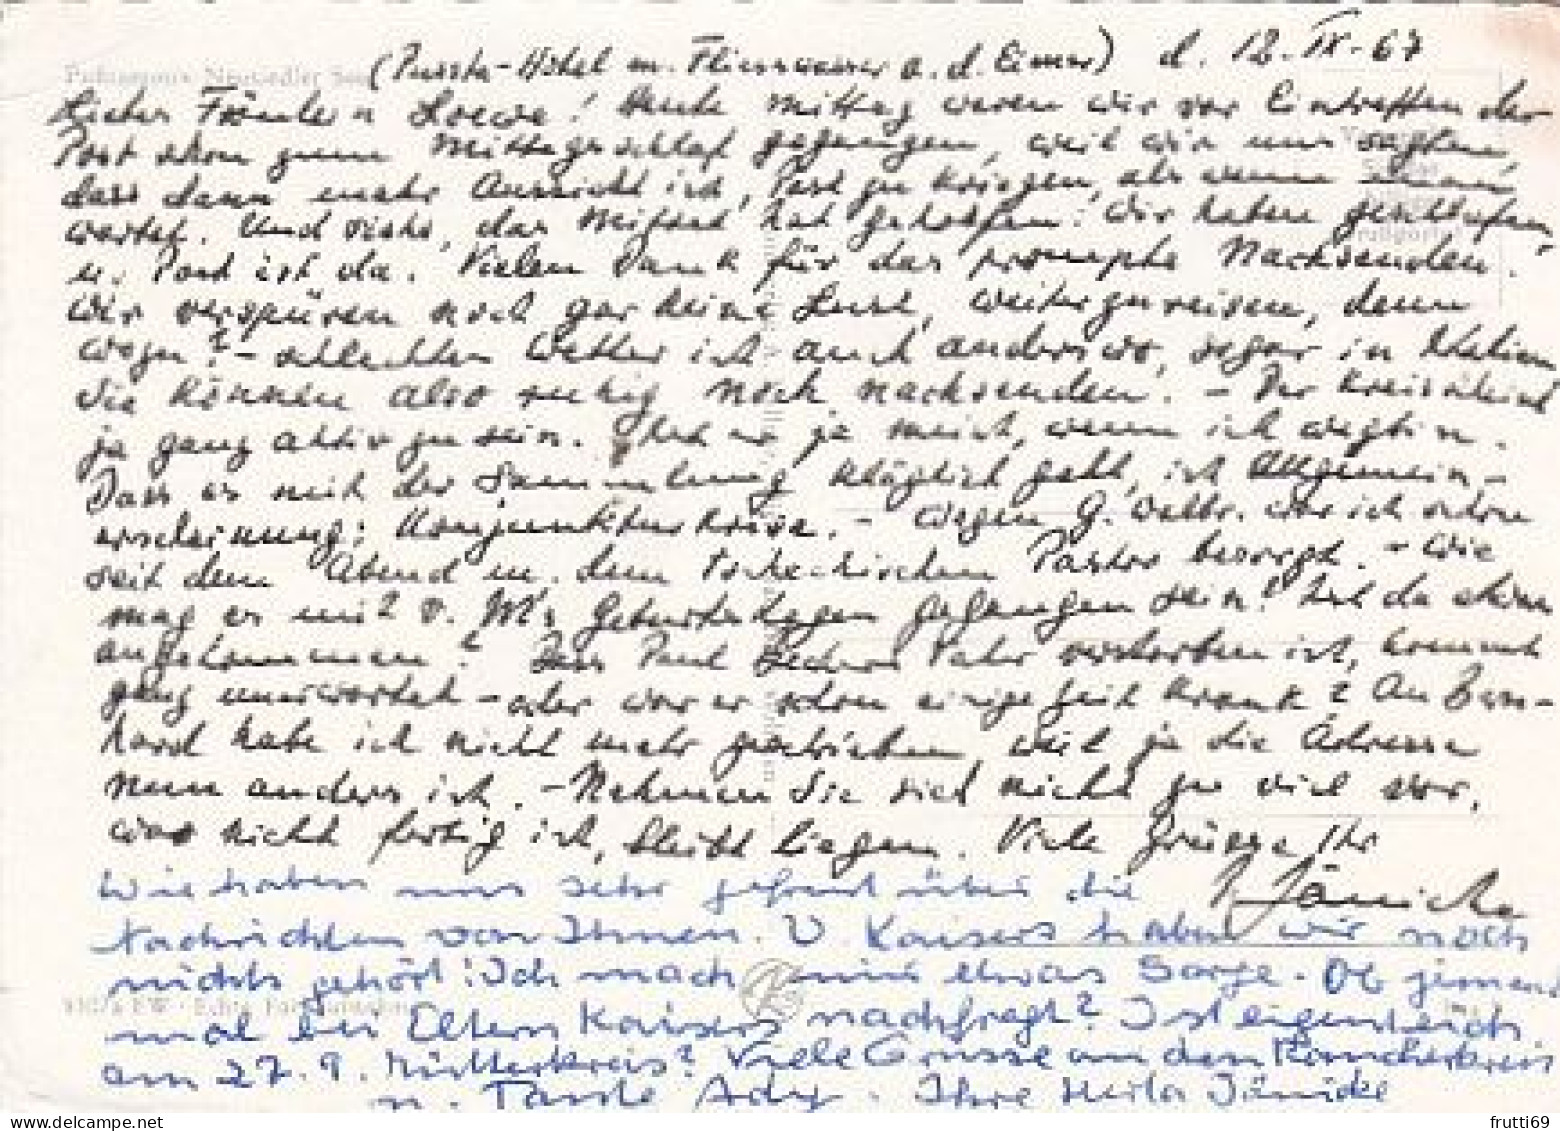 (Pussta-Hotel m. Fliesswasser a. d. Eimer) d. 12. IX. 67
Liebes Fräulein Loewe! Heute Mittag waren wir vor Eintreffen der
Post schon zum Mittagsschlaf gegangen, weil wir uns sagten,
dass dann mehr Aussicht ist, Post zu kriegen, als wenn man
wartet. Und siehe, das Mittel hat geholfen: Wir haben geschlafen,
u. Post ist da. Vielen Dank für das prompte Nachsenden.
Wir verspüren noch gar keine Lust, weiterzureisen, denn
wozu? - schlechtes Wetter ist auch anderswo, sogar in Italien
Sie können also ruhig noch nachsenden. - Der Kreis scheint
ja ganz aktiv zu sein. Hat er ja meist, wenn ich weg bin.
Dass es mit der Sammlung kläglich geht, ist Allgemein-
erscheinung: Konjunkturkrise. - Wegen G. Welbr. war ich schon
seit dem Abend m. dem tschechischen Pastor besorgt. - Wie
mag es mit v. M's Geburtstagen gegangen sein? Ist da etwas
angekommen? Dass Paul Vater verstorben ist, kommt
ganz unerwartet - oder war er schon einige Zeit krank? An Bern-
hard habe ich nicht mehr geschrieben, weil ja die Adresse
nun anders ist. - Nehmen Sie sich nicht zu viel vor,
was nicht fertig ist, bleibt liegen. Viele Grüsse Ihr
Jänicke
Wir haben uns sehr gefreut über die
Nachrichten von Ihnen. V. Kaisers haben wir noch
nichts gehört! Ich mach mir etwas Sorge. Ob jemand
mal bei Eltern Kaisers nachfragt? Ist eigentlich
am 27. 9. Mütterkreis? Viele Grüsse an den
u. Tante Ady. Ihre Herta Jänicke
Neusiedler See
frutti69